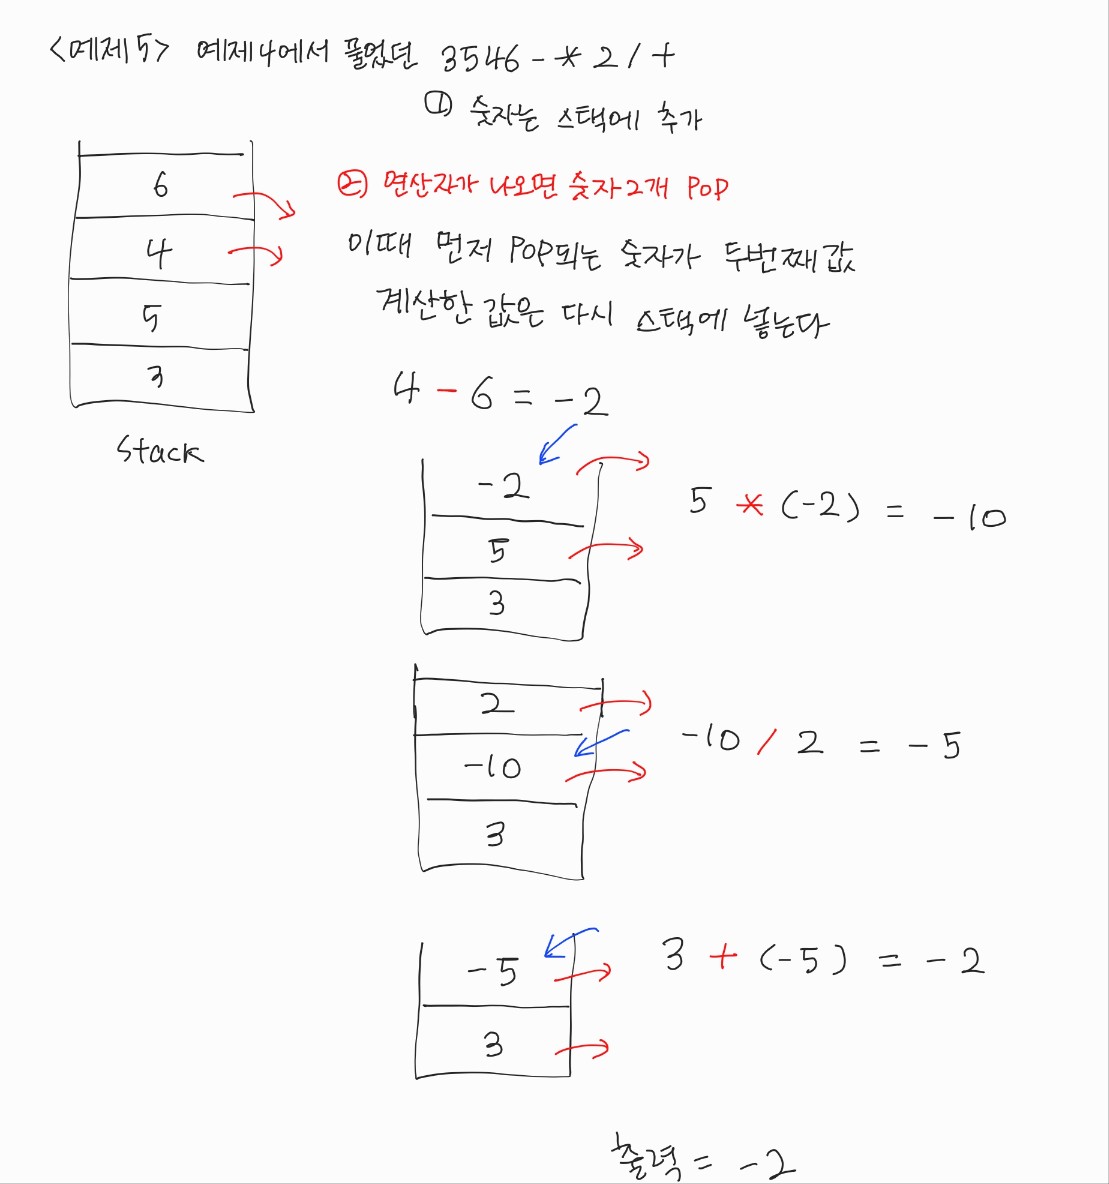 <예제5> 예제4에서 풀었던 3546-*2/+
① 숫자는 스택에 추가
② 연산자가 나오면 숫자2개 Pop
이때 먼저 Pop되는 숫자가 두번째값
계산한 값은 다시 스택에 넣는다
6
4
5
3
Stack
4 - 6 = -2
-2
5
3
5 * (-2) = -10
2
-10
3
-10 / 2 = -5
-5
3
3 + (-5) = -2
출력 = -2